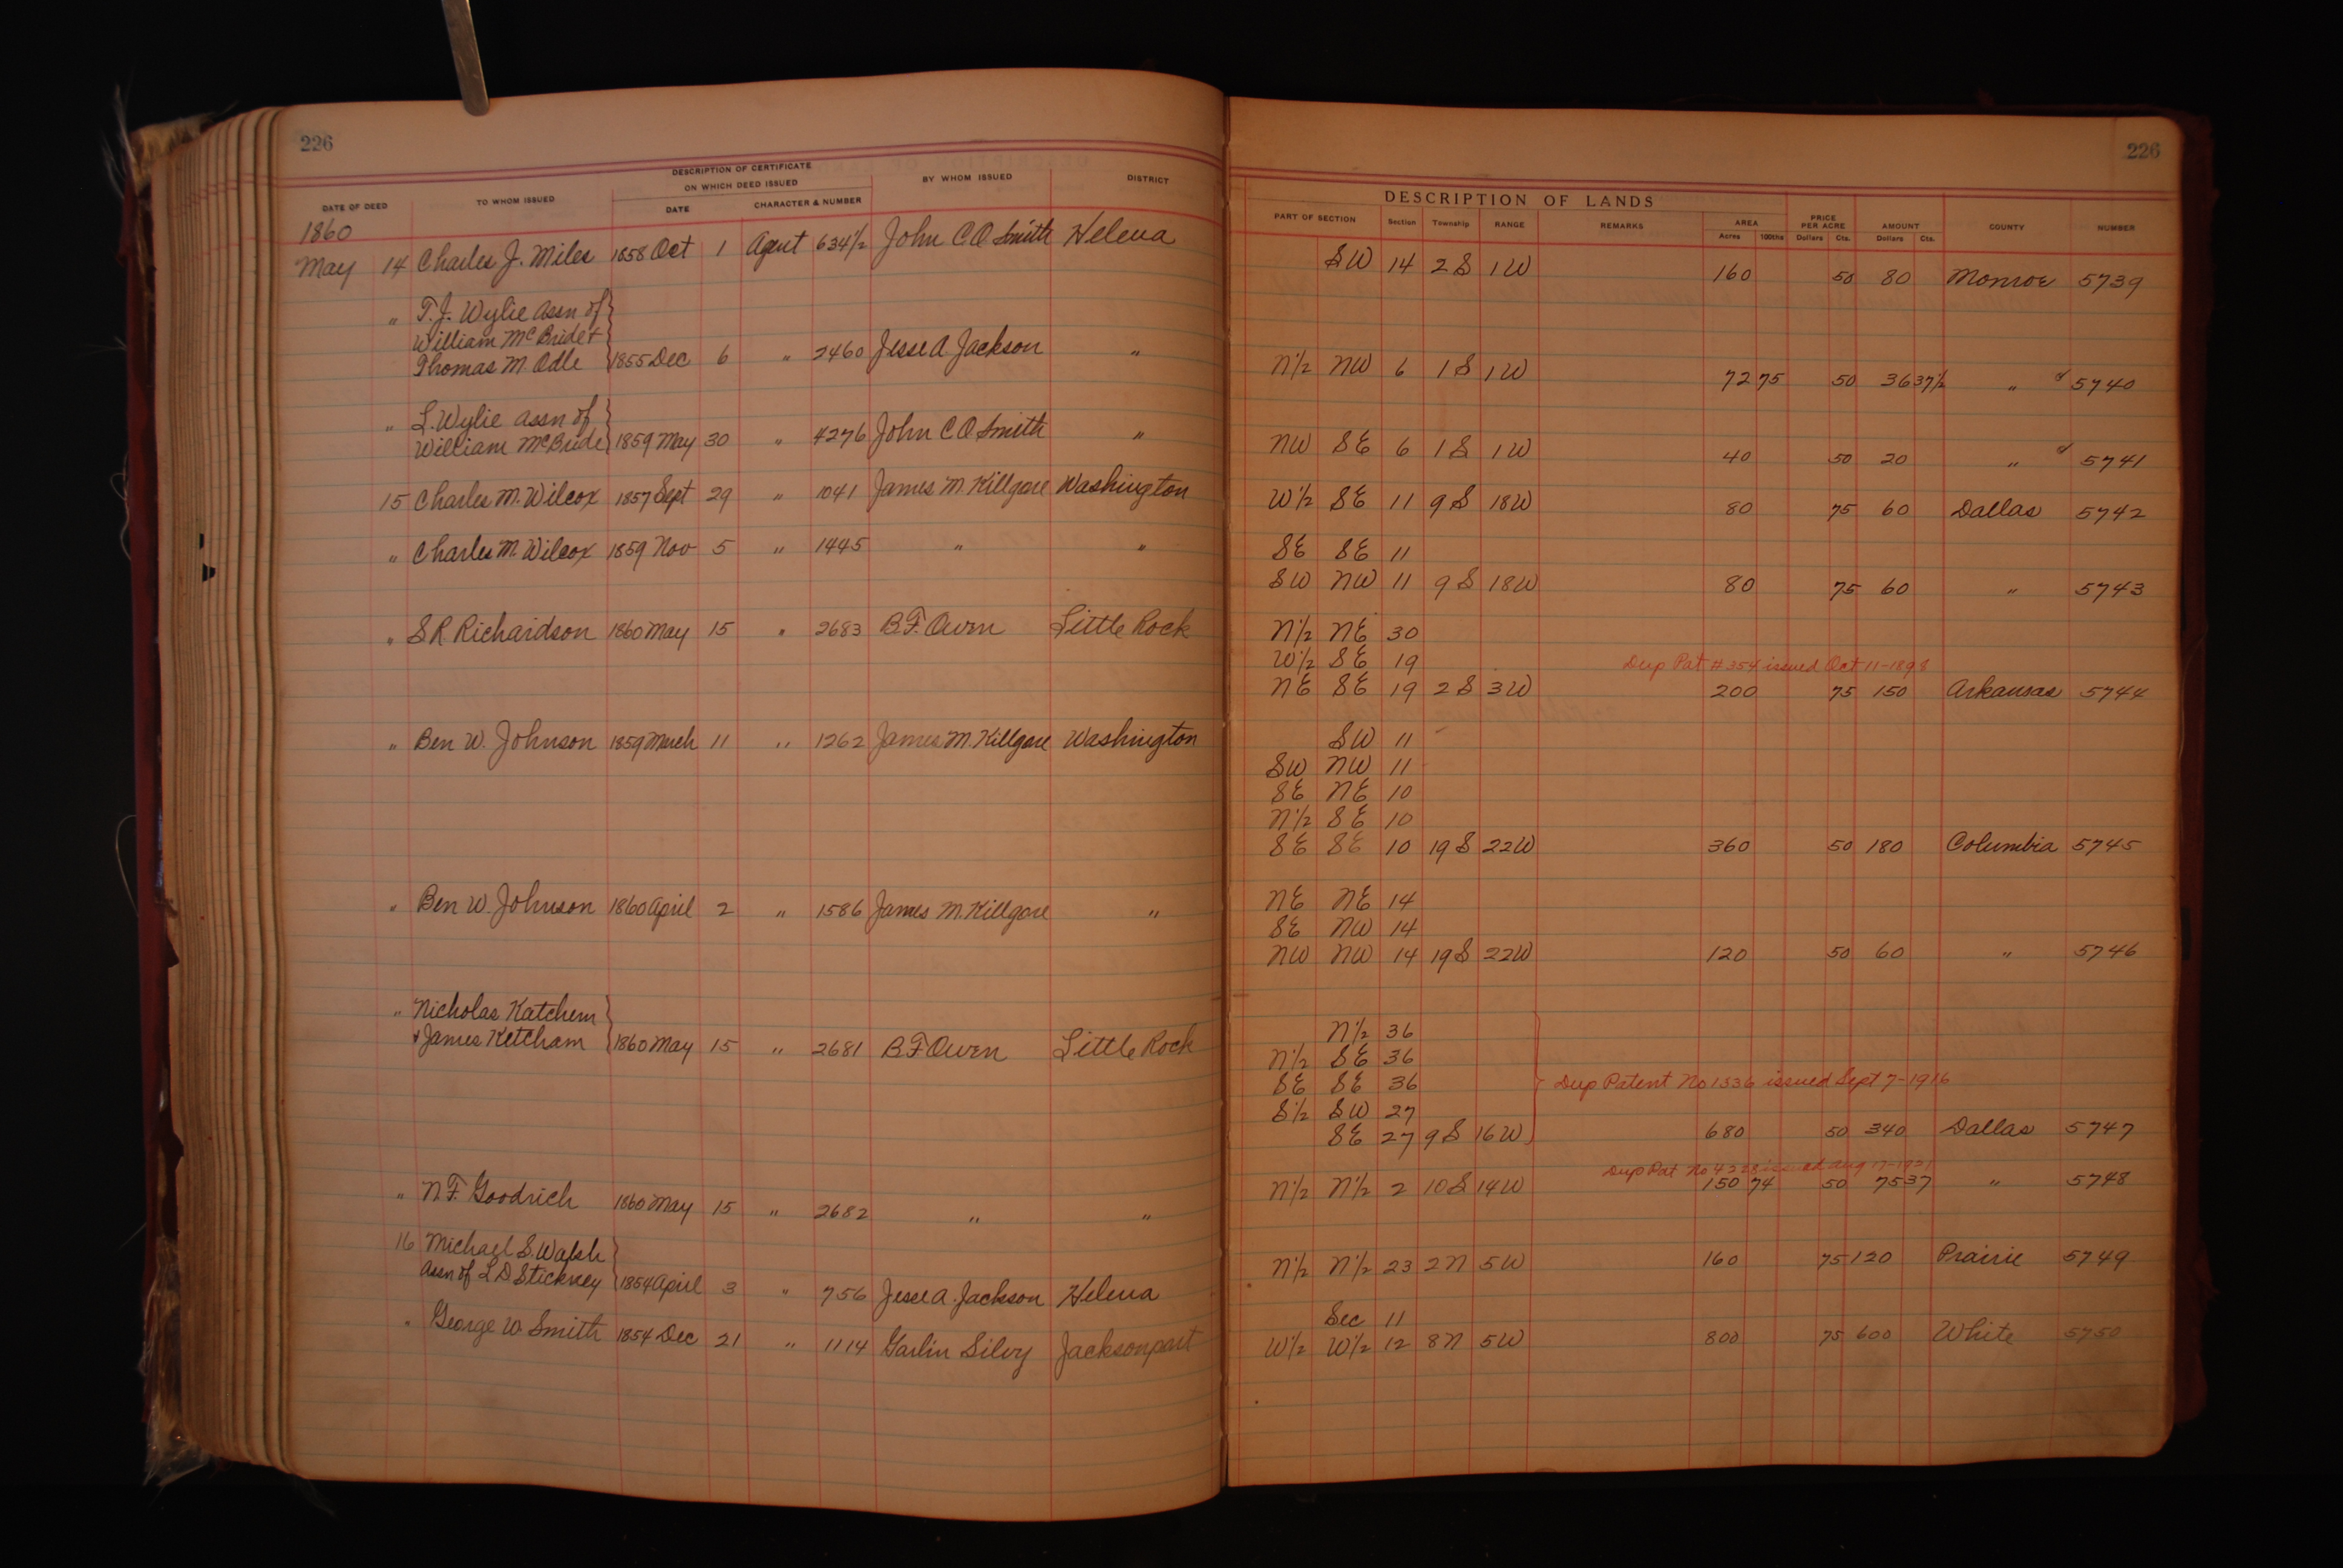 226
DESCRIPTION OF CERTIFICATE
ON WHICH DEED ISSUED
DATE OF DEED TO WHOM ISSUED DATE CHARACTER & NUMBER BY WHOM ISSUED DISTRICT
1860
May 14 Charles J. Miles 1858 Oct 1 Agent 634 1/2 John C O Smith Helena
" T. J. Wylie Assn of
William McBride +
Thomas M. Odle 1855 Dec 6 " 2460 Jesse A. Jackson "
" L. Wylie assn of
William McBride 1859 May 30 " 4276 John C O Smith "
15 Charles M. Wilcox 1857 Sept 29 " 1041 James M Killgore Washington
" Charles M. Wilcox 1859 Nov 5 " 1445 " "
" S R Richardson 1860 May 15 " 2683 B. F. Owen Little Rock
" Ben W. Johnson 1859 March 11 " 1262 James M. Killgore Washington
" Ben W. Johnson 1860 April 2 " 1586 James M. Killgore "
" Nicholas Katchem
+ James Ketcham 1860 May 15 " 2681 B. F. Owen Little Rock
" N. F. Goodrich 1860 May 15 " 2682 " "
16 Michael S. Walsh
Assn of L D Stickney 1854 April 3 " 756 Jesse A. Jackson Helena
" George W. Smith 1854 Dec 21 " 1114 Garlin Silvy Jacksonport
226
DESCRIPTION OF LANDS
PART OF SECTION Section Township RANGE REMARKS AREA PRICE PER ACRE AMOUNT COUNTY NUMBER
Acres 100ths Dollars Cts. Dollars Cts.
SW 14 2 S 1 W 160 50 80 Monroe 5739
N 1/2 NW 6 1 S 1 W 72 75 50 36 37 1/2 " 5740
NW SE 6 1 S 1 W 40 50 20 " 5741
W 1/2 SE 11 9 S 18 W 80 75 60 Dallas 5742
SE SE 11
SW NW 11 9 S 18 W 80 75 60 " 5743
N 1/2 NE 30
W 1/2 SE 19 Dup Pat # 354 issued Oct 11-1898
NE SE 19 2 S 3 W 200 75 150 Arkansas 5744
SW 11
SW NW 11
SE NE 10
N 1/2 SE 10
SE SE 10 19 S 22 W 360 50 180 Columbia 5745
NE NE 14
SE NW 14
NW NW 14 19 S 22 W 120 50 60 " 5746
N 1/2 36
N 1/2 SE 36
SE SE 36 Dup Patent No 1336 issued Sept 7-1916
S 1/2 SW 27
SE 27 9 S 16 W 680 50 340 Dallas 5747
Dup Pat No Aug 17-1921
N 1/2 N 1/2 2 10 S 14 W 150 74 50 75 37 " 5748
N 1/2 N 1/2 23 2 N 5 W 160 75 120 Prairie 5749
Sec 11
W 1/2 W 1/2 12 8 N 5 W 800 75 600 White 5750